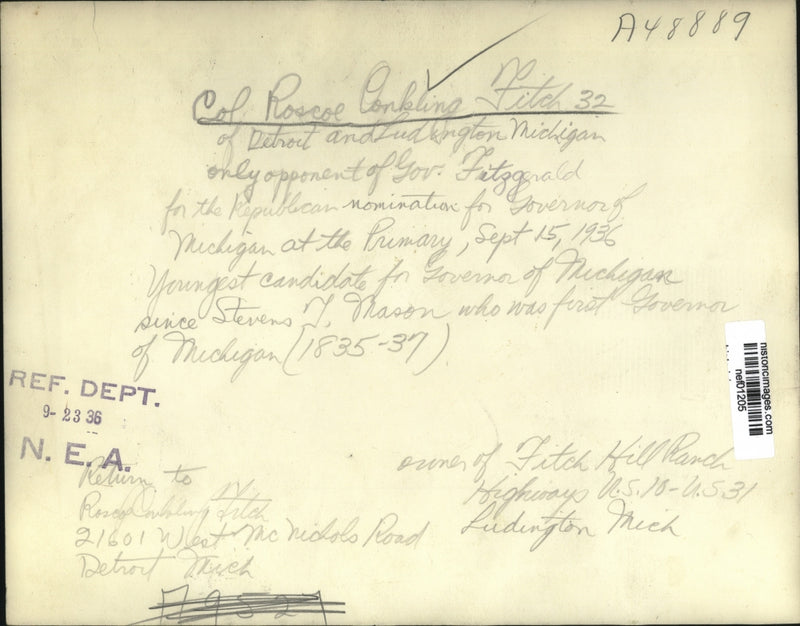 A48889
Col Roscoe Conkling Fitch 32
of Detroit and Ludington Michigan
only opponent of Gov. Fitzgerald
for the Republican nomination for Governor of
Michigan at the Primary, Sept 15, 1936
Youngest candidate for Governor of Michigan
since Stevens T. Mason who was first Governor
of Michigan (1835-37)
historicimages.com
nef01205
REF. DEPT.
9-23 36
N. E. A.
Return to
Roscoe Conkling Fitch
21601 West McNichols Road
Detroit Mich
owner of Fitch Hill Ranch
Highways U.S.10-U.S.31
Ludington Mich